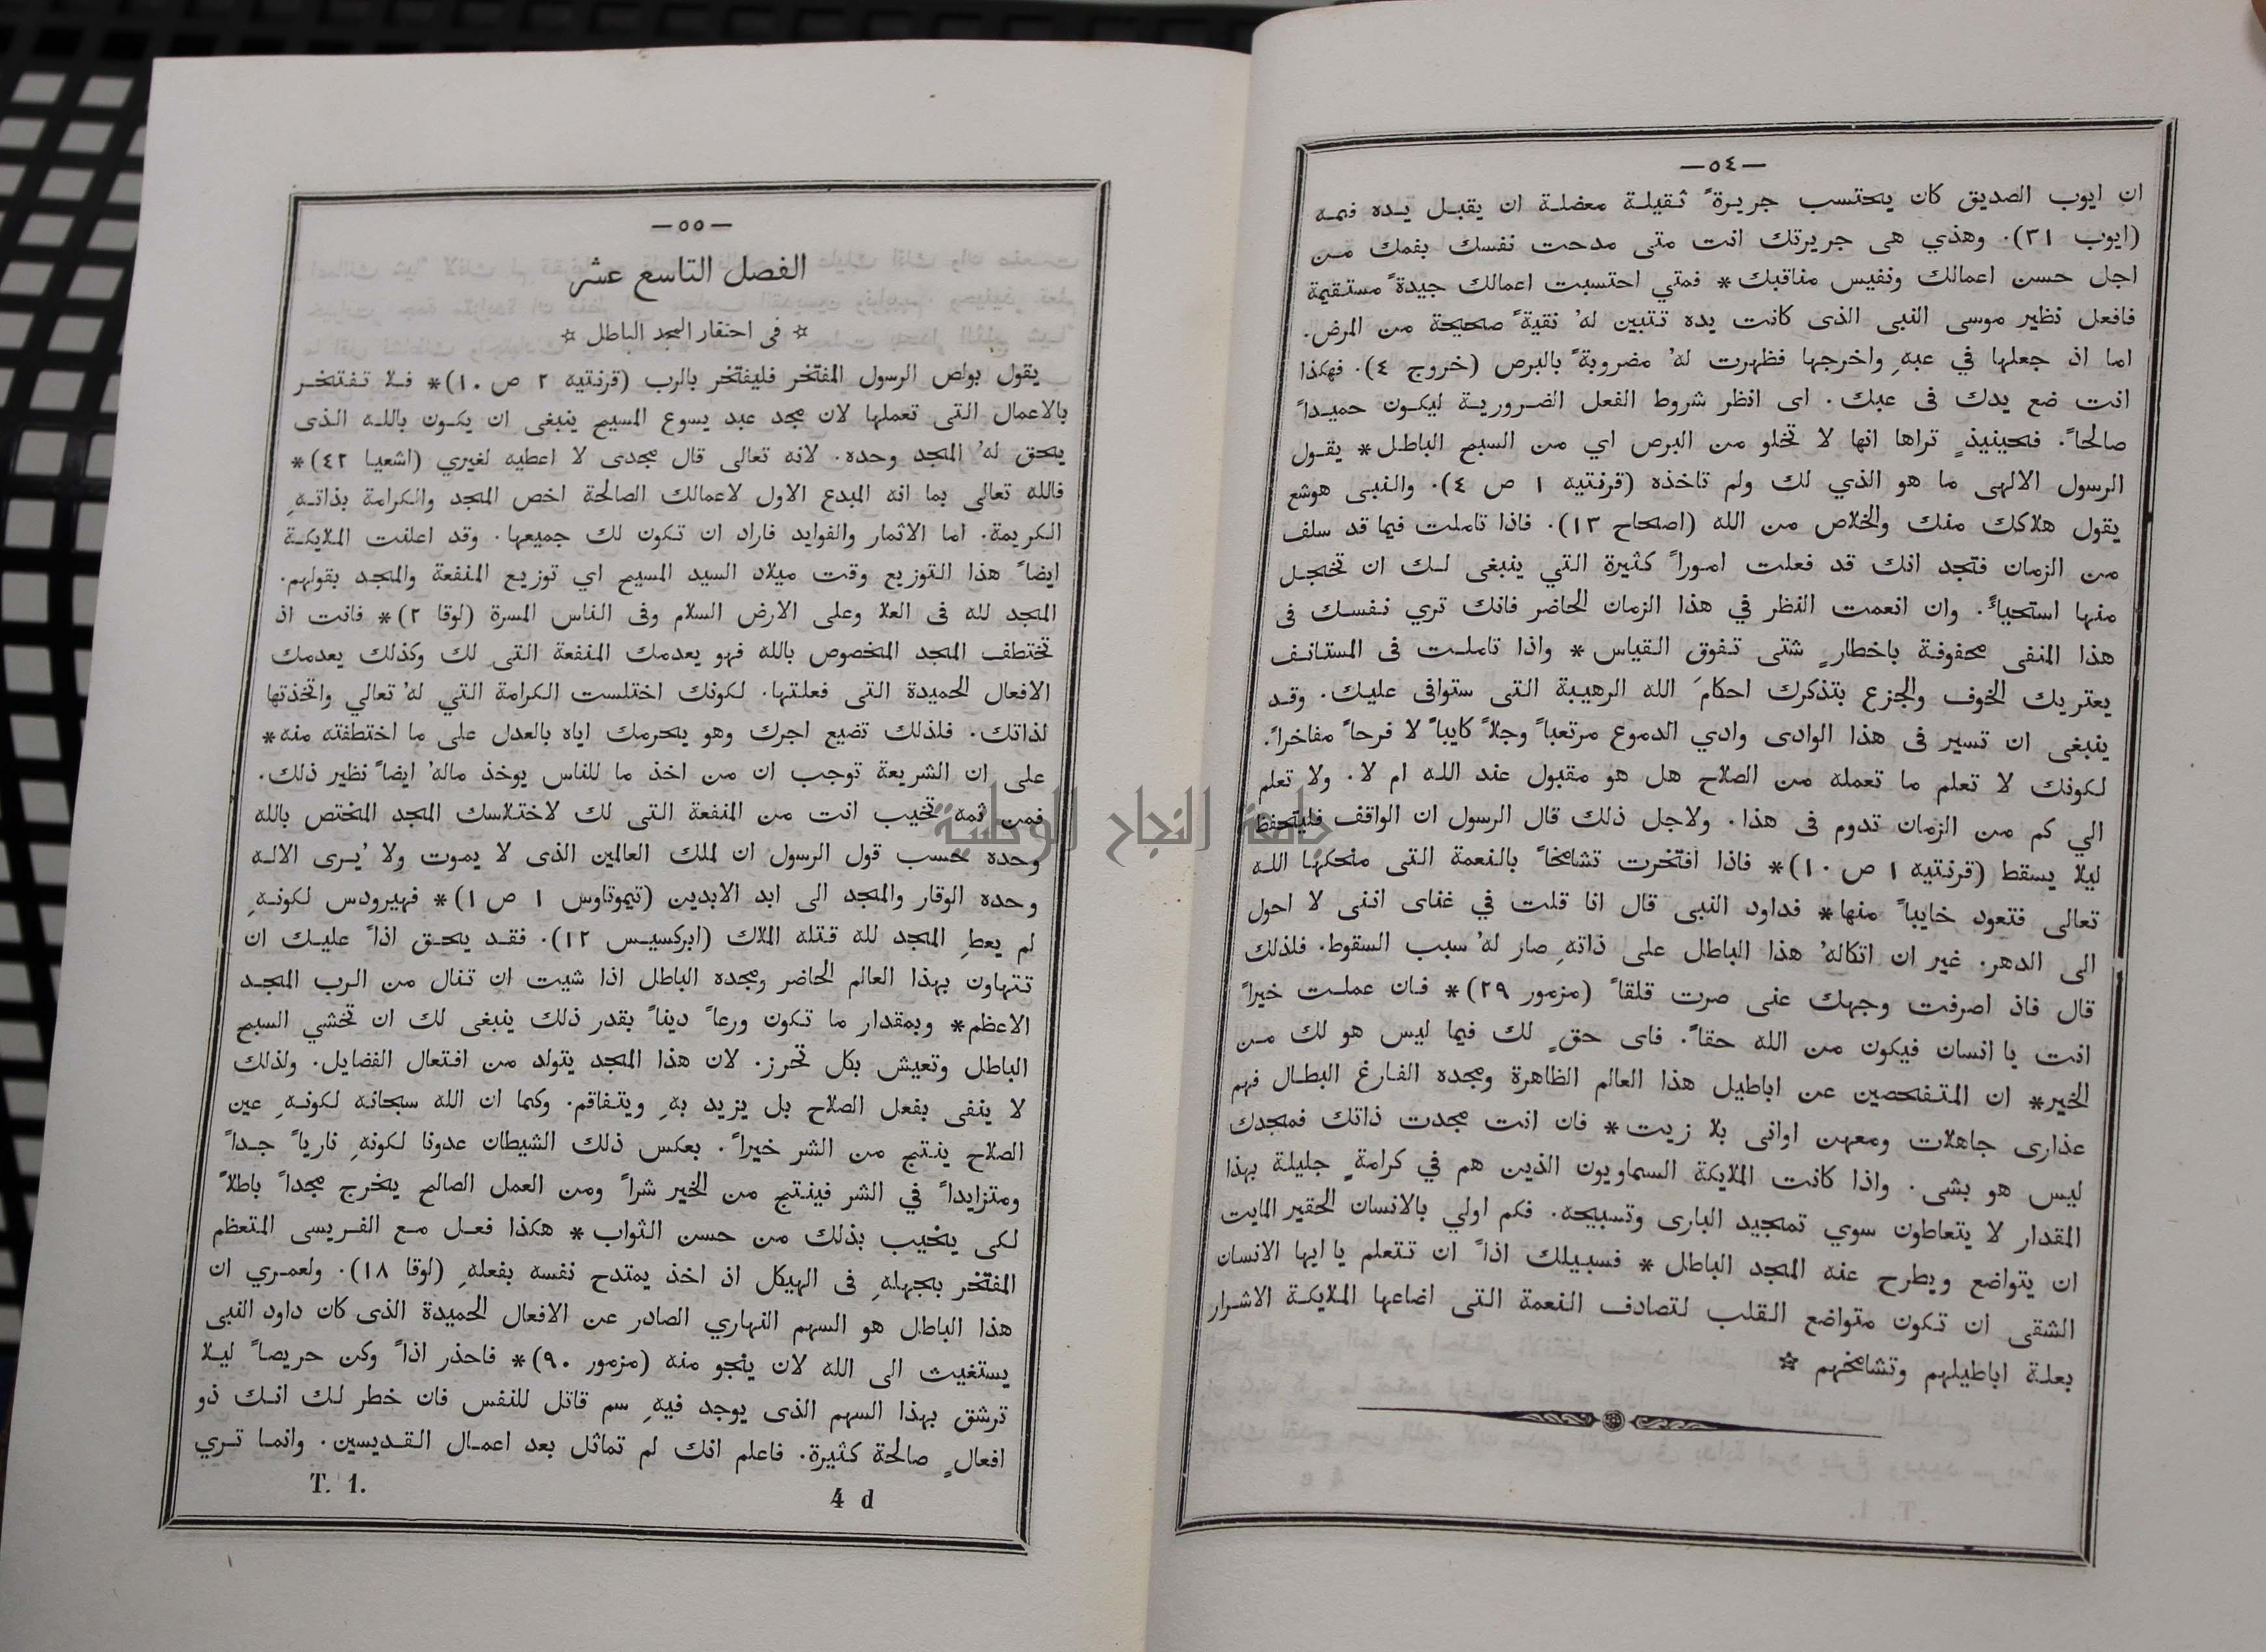 —٥٤—
ان ايوب الصديق كان يحتسب جريرةً ثقيلة معضلة ان يقبل يده فمه
(ايوب ٣١). وهذي هى جريرتك انت متى مدحت نفسك بفمك من
اجل حسن اعمالك ونفيس مناقبك* فمتي احتسبت اعمالك جيدةً مستقيمة
فافعل نظير موسى النبى الذى كانت يده تتبين لهُ نقيةً صحيحة من المرض.
اما اذ جعلها في عبهِ واخرجها فظهرت لهُ مضروبةً بالبرص (خروج ٤). فهكذا
انت ضع يدك فى عبك. اى انظر شروط الفعل الضرورية ليكون حميداً
صالحاً. فحينيذٍ تراها انها لا تخلو من البرص اي من السبح الباطل* يقول
الرسول الالهى ما هو الذي لك ولم تاخذه (قرنتيه ١ ص ٤). والنبى هوشع
يقول هلاكك منك والخلاص من الله (اصحاح ١٣). فاذا تاملت فيما قد سلف
من الزمان فتجد انك قد فعلت اموراً كثيرة التي ينبغى لك ان تخجل
منها استحياءً. وان انعمت النظر في هذا الزمان الحاضر فانك تري نفسك فى
هذا المنفى محفوفة باخطارٍ شتى تفوق القياس* واذا تاملت فى المستانف
يعتريك الخوف والجزع بتذكرك احكامَ الله الرهيبة التى ستوافى عليك. وقد
ينبغى ان تسير فى هذا الوادى وادي الدموع مرتعباً وجلاً كايباً لا فرحاً مفاخراً.
لكونك لا تعلم ما تعمله من الصلاح هل هو مقبول عند الله ام لا. ولا تعلم
الي كم من الزمان تدوم فى هذا. ولاجل ذلك قال الرسول ان الواقف فليتحفظ
ليلا يسقط (قرنتيه ١ ص ١٠)* فاذا افتخرت تشامخاً بالنعمة التى منحكها الله
تعالى فتعود خايباً منها* فداود النبى قال انا قلت في غناى اننى لا احول
الى الدهر. غير ان اتكالهُ هذا الباطل على ذاتهِ صار لهُ سبب السقوط. فلذلك
قال فاذ اصرفت وجهك عنى صرت قلقاً (مزمور ٢٩)* فان عملت خيراً
انت يا انسان فيكون من الله حقاً. فاى حقٍ لك فيما ليس هو لك من
الخير* ان المتفحصين عن اباطيل هذا العالم الظاهرة ومجده الفارغ البطال فهم
عذارى جاهلات ومعهن اوانى بلا زيت* فان انت مجدت ذاتك فمجدك
ليس هو بشى. واذا كانت الملايكة السماويون الذين هم في كرامةٍ جليلة بهذا
المقدار لا يتعاطون سوي تمجيد البارى وتسبيحه. فكم اولي بالانسان الحقير المايت
ان يتواضع ويطرح عنه المجد الباطل* فسبيلك اذاً ان تتعلم يا ايها الانسان
الشقى ان تكون متواضع القلب لتصادف النعمة التى اضاعها الملايكة الاشرار
بعلة اباطيلهم وتشامخهم ☆
—٥٥—
الفصل التاسع عشر
☆ فى احتقار المجد الباطل ☆
يقول بولص الرسول المفتخر فليفتخر بالرب (قرنتيه ٢ ص ١٠)* فلا تفتخر
بالاعمال التى تعملها لان مجد عبد يسوع المسيح ينبغى ان يكون بالله الذى
يحق لهُ المجد وحده. لانه تعالى قال مجدى لا اعطيه لغيري (اشعيا ٤٢)*
فالله تعالى بما انه المبدع الاول لاعمالك الصالحة اخص المجد والكرامة بذاتهِ
الكريمة. اما الاثمار والفوايد فاراد ان تكون لك جميعها. وقد اعلنت الملايكة
ايضاً هذا التوزيع وقت ميلاد السيد المسيح اي توزيع المنفعة والمجد بقولهم.
المجد لله فى العلا وعلى الارض السلام وفى الناس المسرة (لوقا ٢)* فانت اذ
تختطف المجد المخصوص بالله فهو يعدمك المنفعة التى لك وكذلك يعدمك
الافعال الحميدة التى فعلتها. لكونك اختلست الكرامة التي لهُ تعالي واتخذتها
لذاتك. فلذلك تضيع اجرك وهو يحرمك اياه بالعدل على ما اختطفته منه*
على ان الشريعة توجب ان من اخذ ما للناس يوخذ مالهُ ايضاً نظير ذلك.
فمن ثمه تخيب انت من المنفعة التى لك لاختلاسك المجد المختص بالله
وحده بحسب قول الرسول ان لملك العالمين الذى لا يموت ولا يُرى الاله
وحده الوقار والمجد الى ابد الابدين (تيموتاوس ١ ص ١)* فهيرودس لكونهِ
لم يعطِ المجد لله قتله الملاك (ابركسيس ١٢). فقد يحق اذاً عليك ان
تتهاون بهذا العالم الحاضر ومجده الباطل اذا شيت ان تنال من الرب المجد
الاعظم* وبمقدار ما تكون ورعاً ديناً بقدر ذلك ينبغى لك ان تخشي السبح
الباطل وتعيش بكل تحرز. لان هذا المجد يتولد من افتعال الفضايل. ولذلك
لا ينفى بفعل الصلاح بل يزيد بهِ ويتفاقم. وكما ان الله سبحانه لكونهِ عين
الصلاح ينتج من الشر خيراً. بعكس ذلك الشيطان عدونا لكونهِ نارياً جداً
ومتزايداً في الشر فينتج من الخير شراً ومن العمل الصالح يخرج مجداً باطلاً
لكى يخيب بذلك من حسن الثواب* هكذا فعل مع الفريسى المتعظم
المفتخر بجهلهِ فى الهيكل اذ اخذ يمتدح نفسه بفعلهِ (لوقا ١٨). ولعمري ان
هذا الباطل هو السهم النهاري الصادر عن الافعال الحميدة الذى كان داود النبى
يستغيث الى الله لان ينجو منه (مزمور ٩٠)* فاحذر اذاً وكن حريصاً ليلا
ترشق بهذا السهم الذى يوجد فيهِ سم قاتل للنفس فان خطر لك انك ذو
افعالٍ صالحة كثيرة. فاعلم انك لم تماثل بعد اعمال القديسين. وانما تري
T. 1. 4 d
جامعة النجاح الوطنية